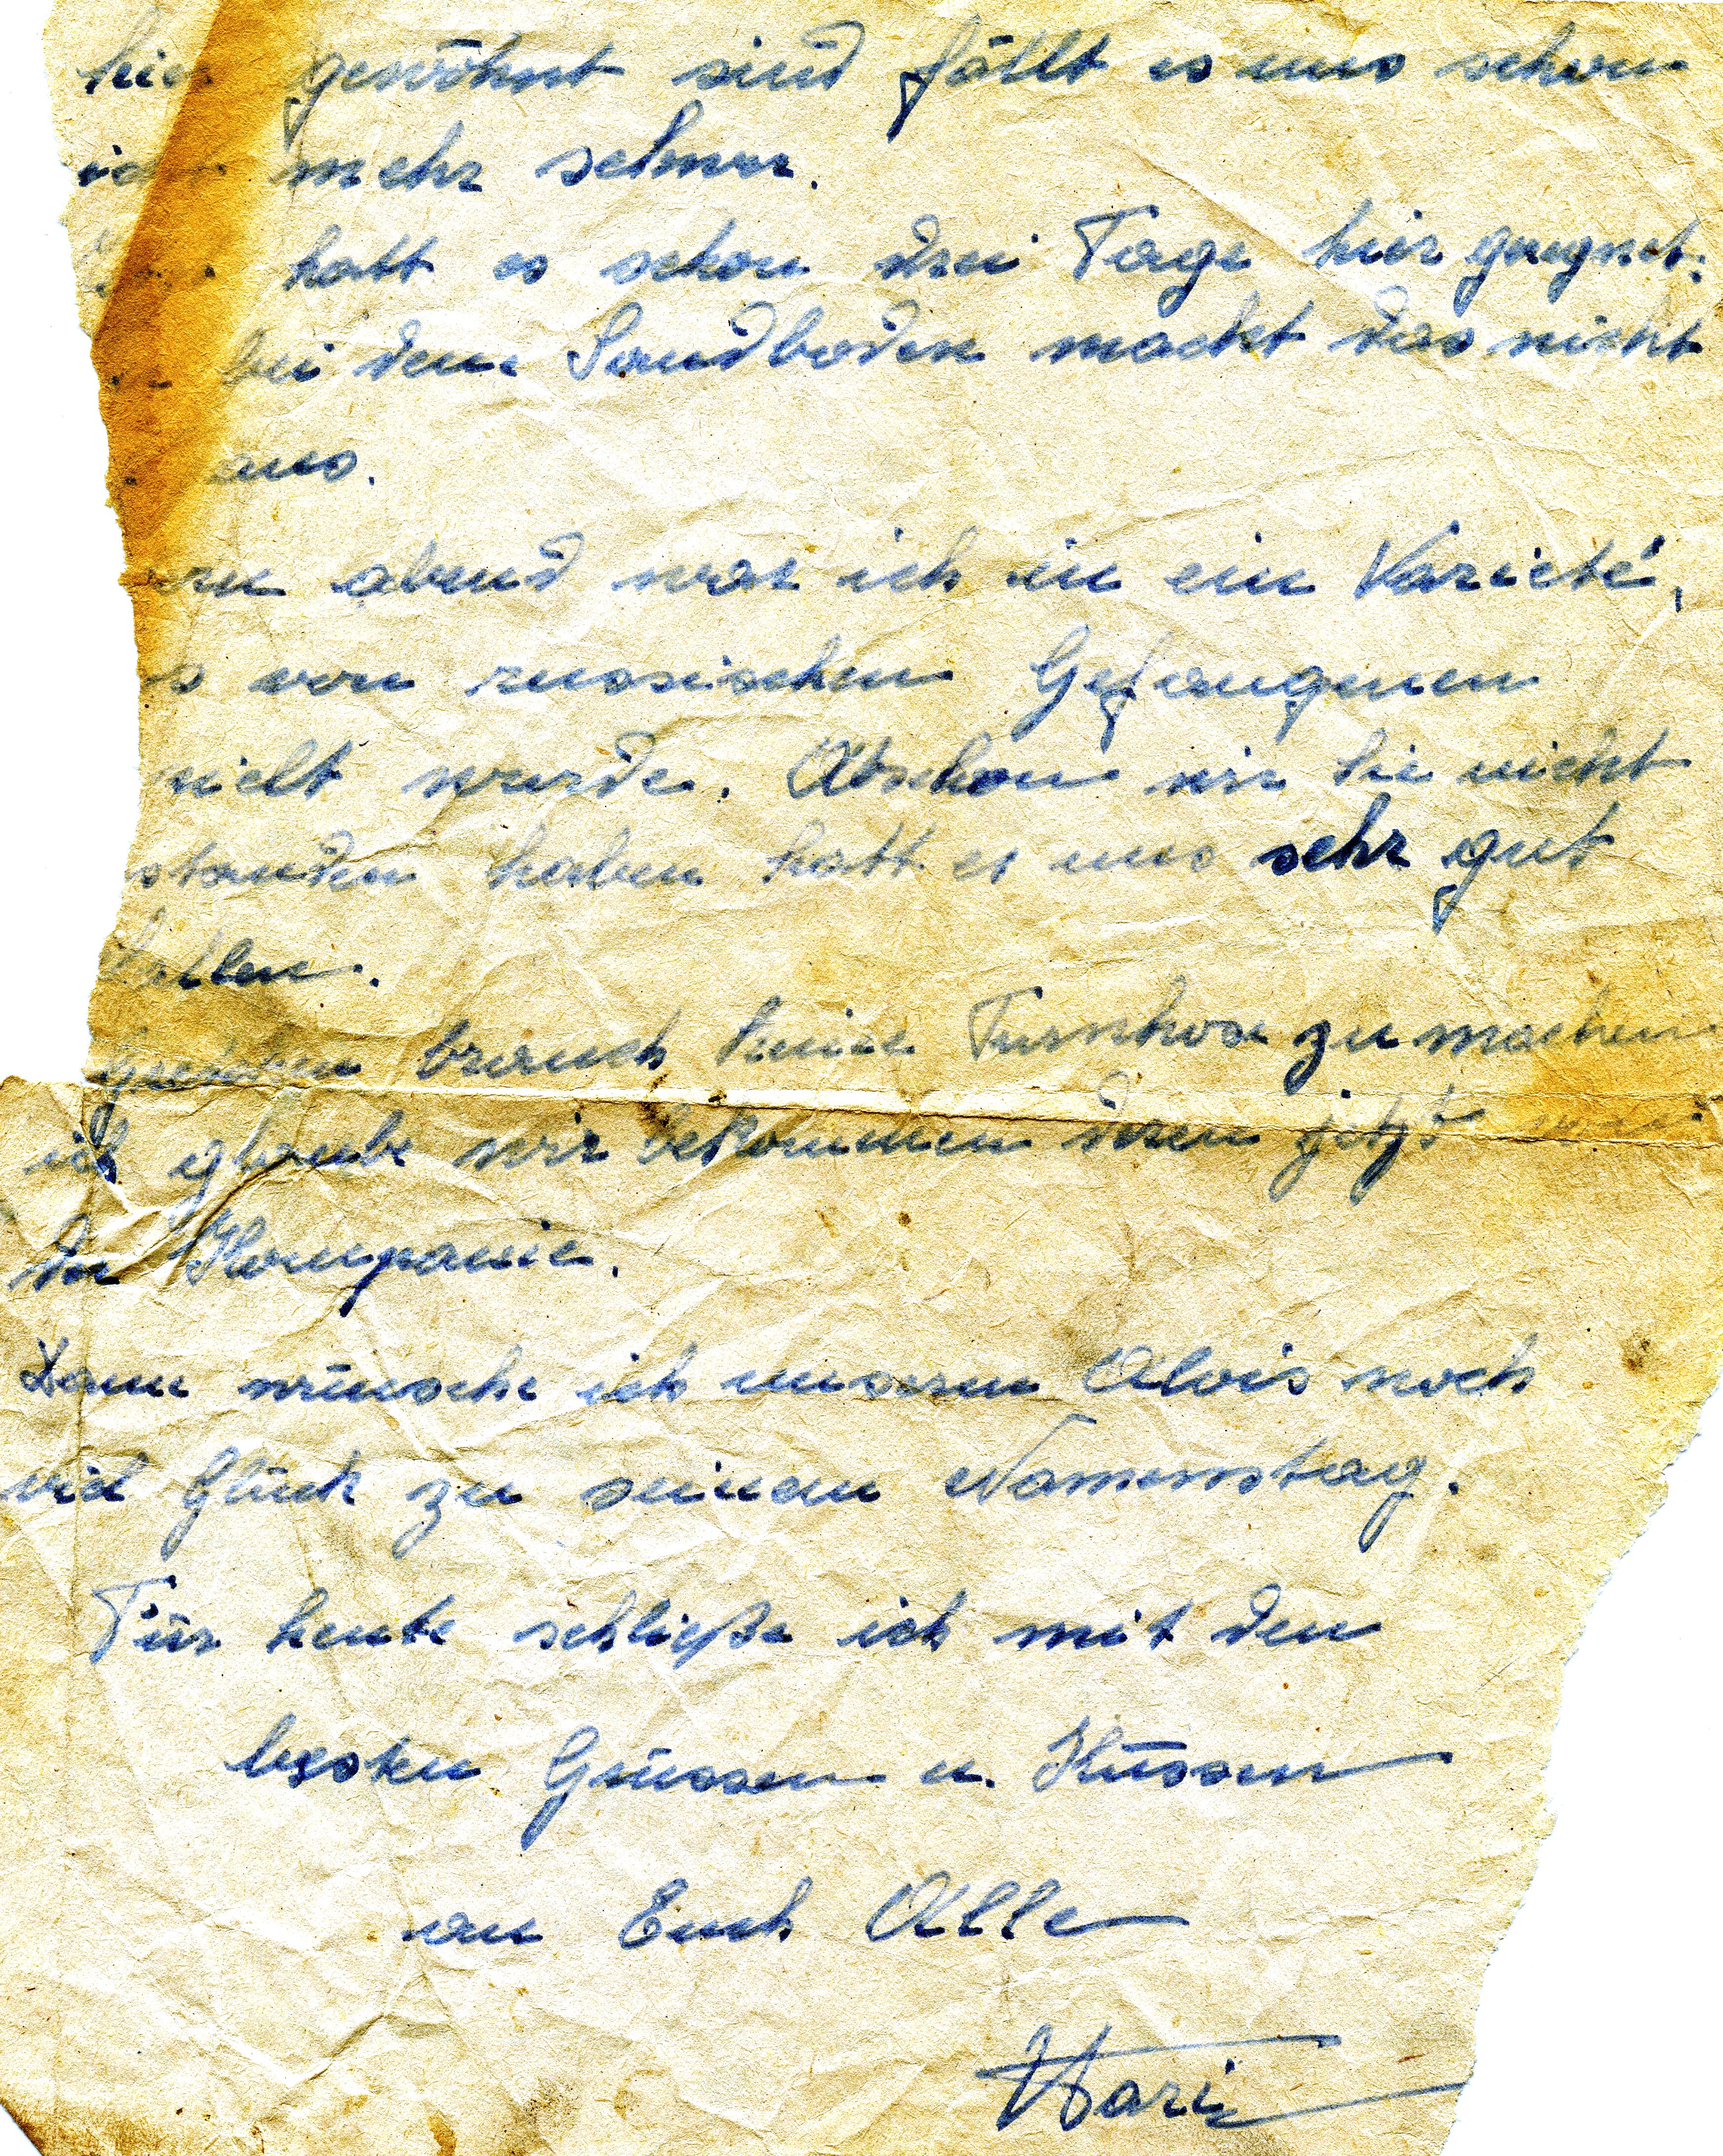 hier gewöhnt sind fällt es uns schon
mehr schwer.
hatt es schon drei Tage hier geregnet.
bei dem Sandboden macht das nicht
aus.
ern abend war ich in ein Varieté,
s von russischen Gefangenen
pielt wurde. Obschon wir sie nicht
standen haben hatt es uns sehr gut
fallen.
brauch keine Turnhose zu machen
ich glaube wir bekommen jetzt
der Kompanie.
Dann wünsche ich unserm Alois noch
viel Glück zu seinem Namenstag.
Für heute schließe ich mit den
besten Grüssen u. Küssen
an Euch Alle